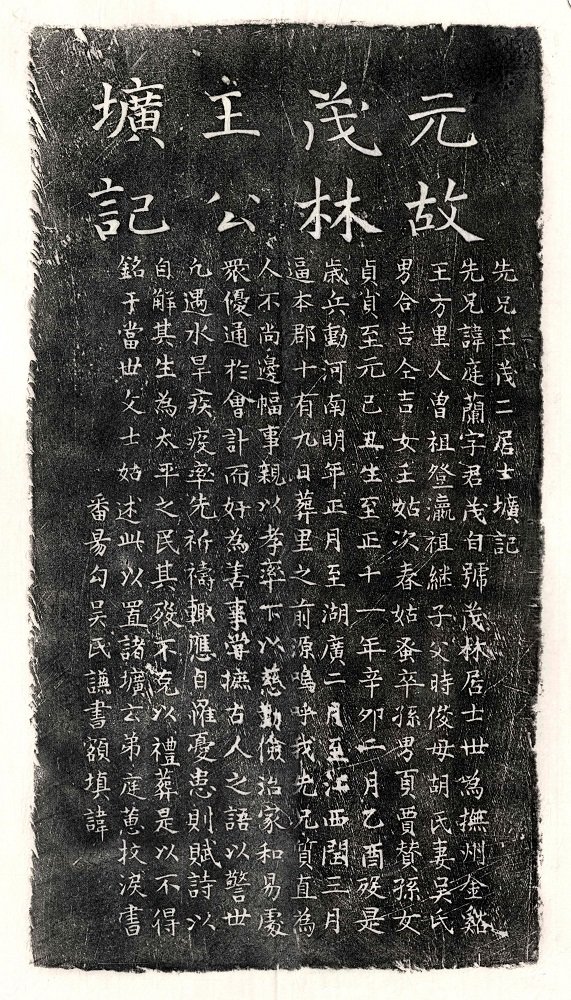 元故
茂林
主公
壙記
先兄王茂二居士壙記
先兄諱庭蘭字君茂自號茂林居士世爲撫州金谿
王方里人曾祖登瀛祖継子父時俊母胡氏妻吴氏
男合吉仝吉女王姑次春姑蚤卒孫男頁賈賛孫女
貞貨至元己丑生至正十一年辛卯二月乙酉殁是
歲兵動河南明年正月至湖廣二月至江西閏三月
逼本郡十有九日葬里之前源嗚呼我先兄質直為
人不尚邊幅事親以孝率下以慈勤儉治家和易處
衆優通於會計而好為善事嘗摭古人之語以警世
凢遇水旱疾疫率先祈禱輙應自罹憂患則賦詩以
自解其生為太平之民其殁不克以禮葬是以不得
銘于當世文士姑述此以置諸壙云弟庭蕙抆淚書
番昜勾吴民謙書額填諱